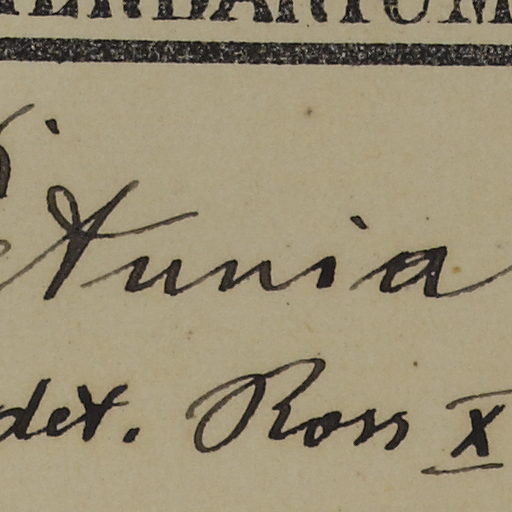 HERBARIUM
etunia
det. Ross X